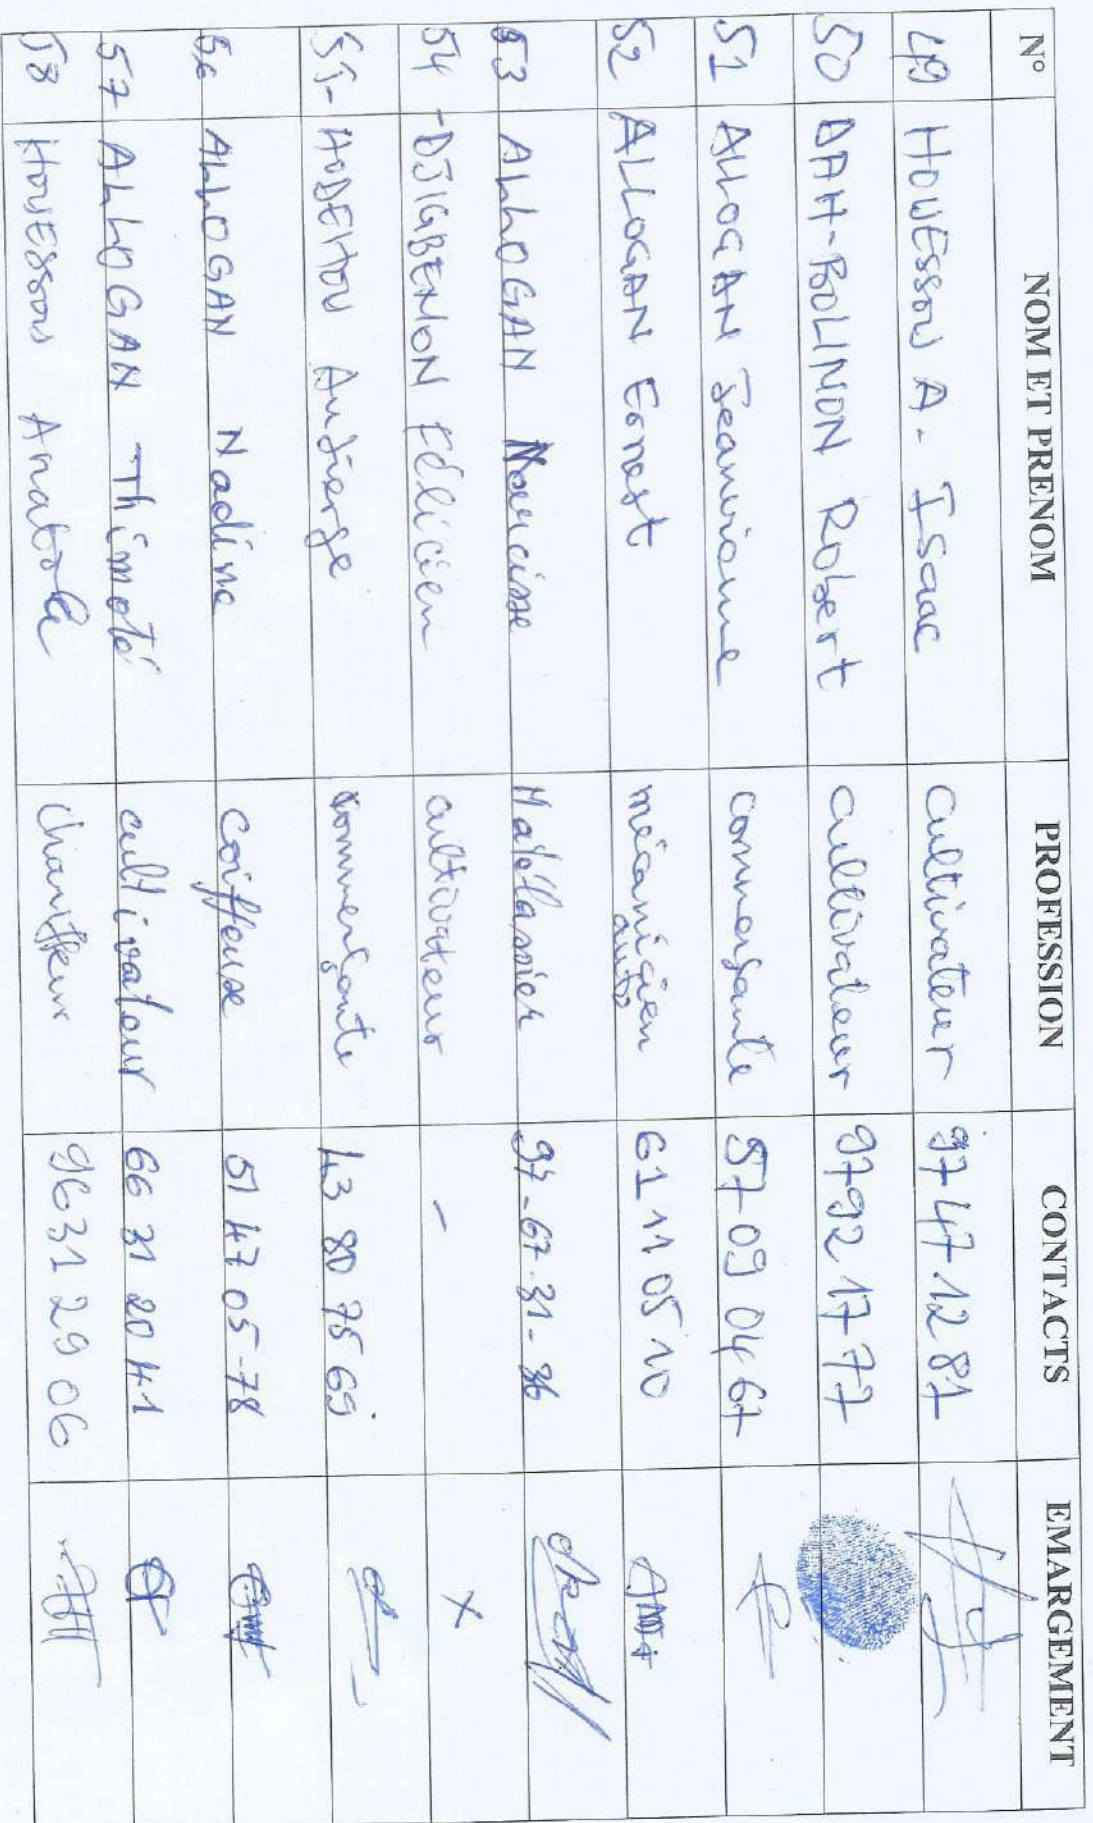 N° NOM ET PRENOM PROFESSION CONTACTS EMARGEMENT
49 HOUESSOU A. Isaac cultivateur 97 47 12 81
50 DAH-BOLINON Robert cultivateur 97 92 17 77
51 ALLOGAN Jeanvienne commerçante 57 09 04 67
52 ALLOGAN Ernest mécanicien auto 61 11 05 10
53 ALLOGAN Nourcisse Matélassier 97-67-31-36
54 -DJIGBENON Félicien cultivateur - X
55- HODEHOU Antierge commerçante 43 80 75 69
56 ALLOGAN Nadine coiffeuse 51 47 05-78
57 ALLOGAN Thimoté cultivateur 66 31 20 41
58 HOUESSOU Anatole chauffeur 96 31 29 06